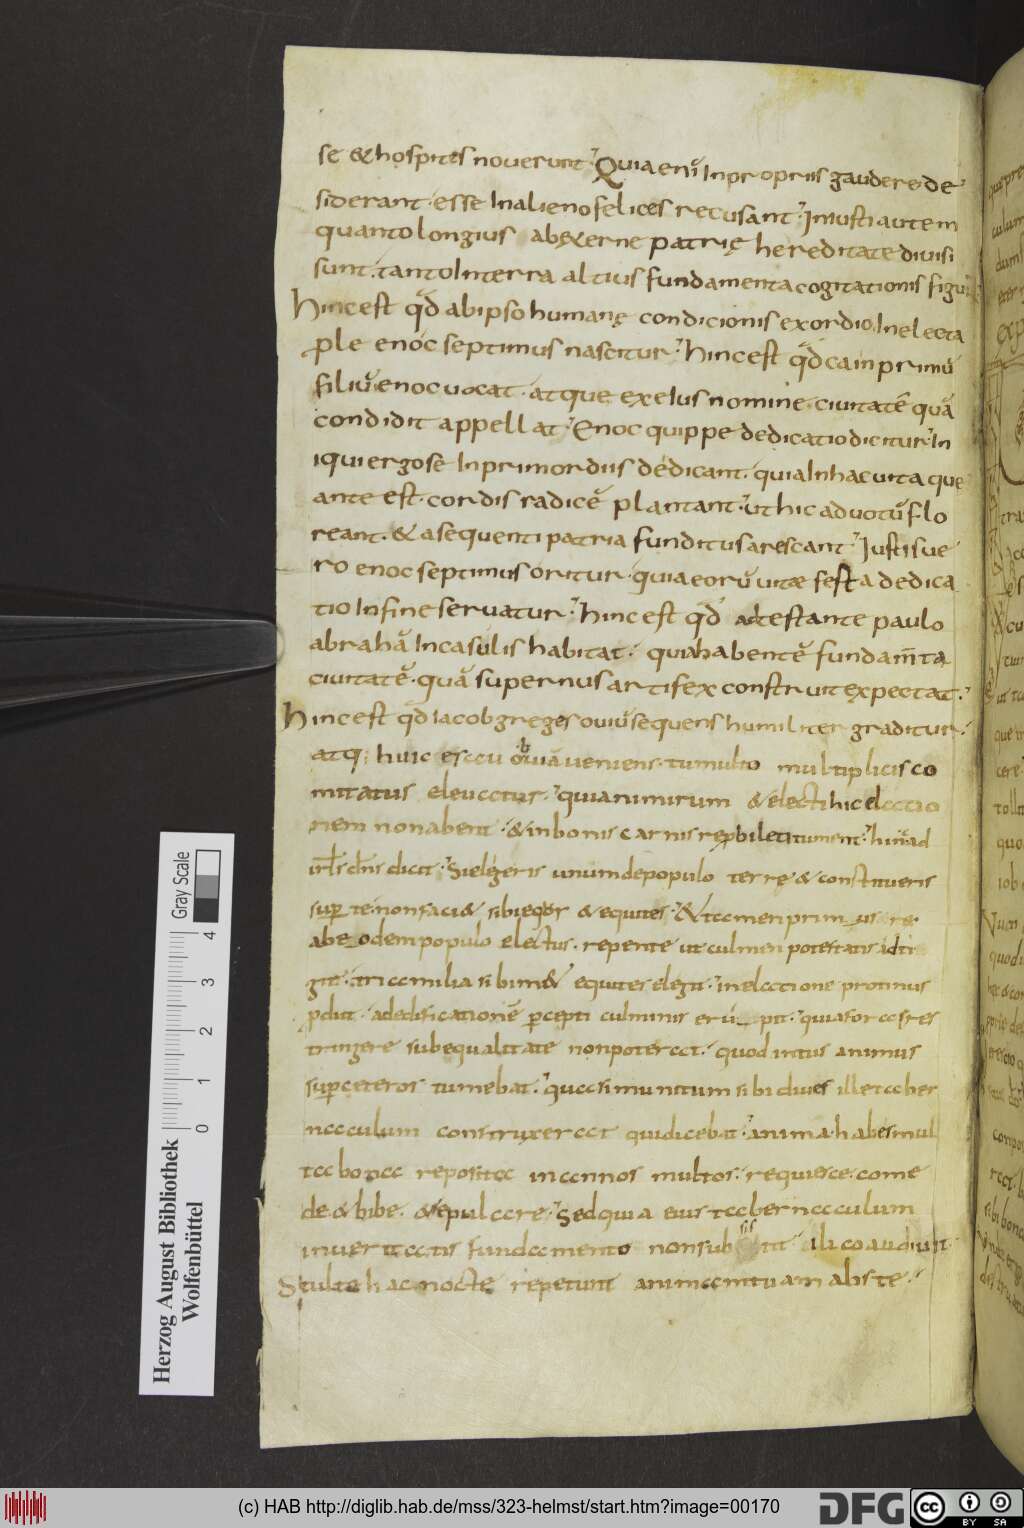 se &hospites noverunt; Quia enī In propriis gaudere de
siderant. esse In alieno felices recusant; Iniusti autem
quanto longius ab ęterne patrię hereditate divisi
sunt. tanto In terra altius fundamenta cogitationis
Hinc est qđ ab ipso humanę condicionis exordio, In electa
ple enoc septimus nascitur; hinc est qđ cain primū
filiū enoc vocat. atque ex eius nomine. civitatē quā
condidit appellat; Enoc quippe dedicatio dicitur; In
iqui ergo se In primordiis dedicant. quia In hac vita quę
ante est. cordis radicē plantant. ut hic ad votū flo
reant. & a sequenti patria funditus arescant; Iustis ve
ro enoc septimus oritur. quia eorū vitae festa dedica
tio In fine servatur; hinc est qđ adtestante paulo
abrahā In casulis habitat. quia habentē fundam̄ta
civitatē. quā supernus artifex construit expectat;
Hinc est qđ iacob greges oviū sequens humiliter graditur.
atq; huic esau obviā veniens. tumulto multiplicis co
mitatus elevatur; quia nimirum & electi hic elatio
nem non abent. & in bonis carnis tument; hinc ad
isrl dns dicit; Si elegeris unum de populo terrę & constitueris
super te. non faci& sibi equos & equites;
abe odem populo electus. repente ut culmen potestatis
git. tria milia sibim& equites elegit; in elatione protinus
pdiit. ad edificationē percepti culminis quia foras res
tringere sub equalitate non poterat. quod intus animus
super ceteros tumebat; quasi munitum sibi dives ille taber
naculum construxerat qui dicebat; anima. habes mul
ta bona reposita in annos multos. requiesce. come
de & bibe. & epulare; Sed quia eius tabernaculum
in veritatis fundamento non sub tit ilico audiuit.
Stulte hac nocte repetunt animam tuam abs te;
Gray Scale
0 1 2 3 4
Herzog August Bibliothek
Wolfenbüttel
(c) HAB http://diglib.hab.de/mss/323-helmst/start.htm?image=00170
DFG
cc BY SA